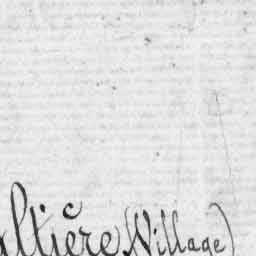 altière (Village)